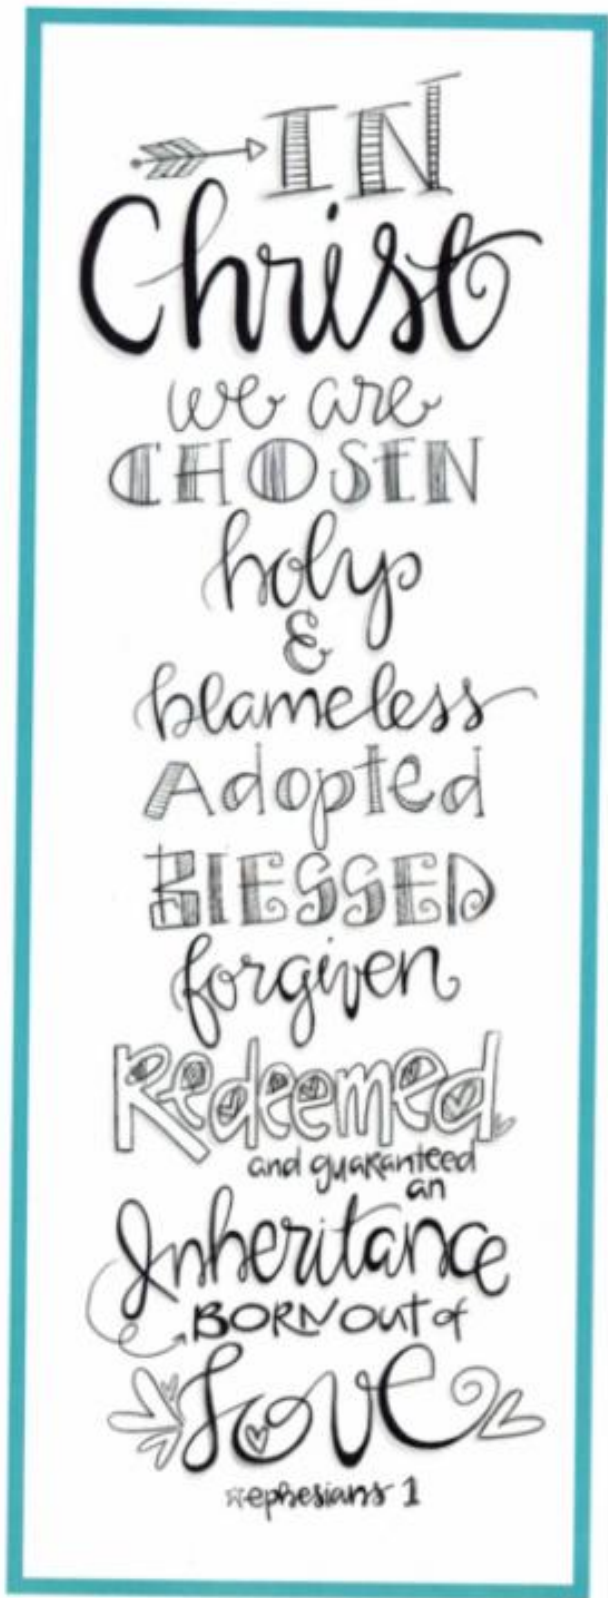 IN
Christ
we are
CHOSEN
holy
&
blameless
Adopted
BLESSED
forgiven
Redeemed
and guaranteed
an
Inheritance
BORN out of
Love
ephesians 1